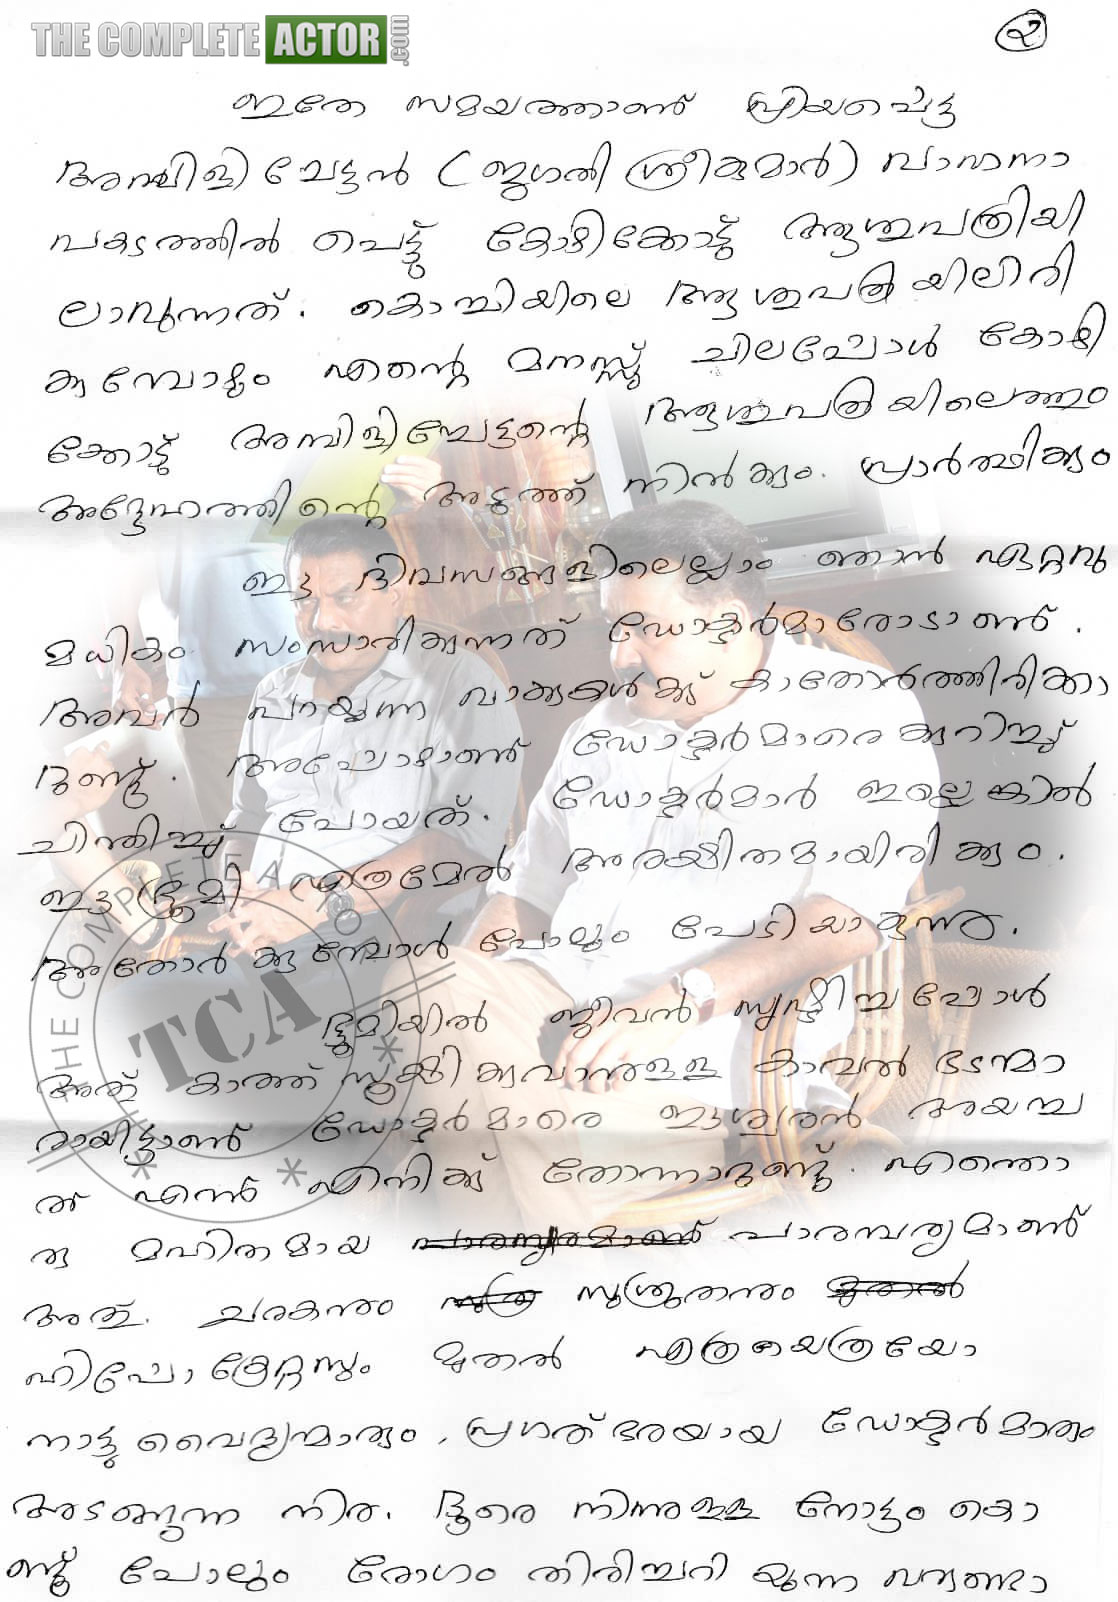 THE COMPLETE ACTOR .com
൨
ഇതേ സമയത്താണ് പ്രിയപ്പെട്ട
അമ്പിളി ചേട്ടൻ (ജഗതി ശ്രീകുമാർ) വാഹനാ
പകടത്തിൽ പെട്ട് കോഴിക്കോട്ട് ആശുപത്രിയി
ലാവുന്നത്. കൊച്ചിയിലെ ആശുപത്രിയിലിരി
ക്കുമ്പോഴും എന്റെ മനസ്സ് ചിലപ്പോൾ കോഴി
ക്കോട്ട് അമ്പിളിച്ചേട്ടന്റെ ആശുപത്രിയിലെത്തും
അദ്ദേഹത്തിന്റെ അടുത്ത് നിൽക്കും. പ്രാർത്ഥിക്കും
ഈ ദിവസങ്ങളിലെല്ലാം ഞാൻ ഏറ്റവു
മധികം സംസാരിക്കുന്നത് ഡോക്ടർമാരോടാണ്.
അവർ പറയുന്ന വാക്കുകൾക്ക് കാതോർത്തിരിക്കാ
റുണ്ട്. അപ്പോഴാണ് ഡോക്ടർമാരെക്കുറിച്ച്
ചിന്തിച്ച് പോയത്. ഡോക്ടർമാർ ഇല്ലെങ്കിൽ
ഈ ഭൂമി എത്രമേൽ അരക്ഷിതമായിരിക്കും.
അതോർക്കുമ്പോൾ പോലും പേടിയാകുന്നു.
ഭൂമിയിൽ ജീവൻ സൃഷ്ടിച്ചപ്പോൾ
അത് കാത്ത് സൂക്ഷിക്കുവാനുള്ള കാവൽ ഭടന്മാ
രായിട്ടാണ് ഡോക്ടർമാരെ ഈശ്വരൻ അയച്ച
ത് എന്ന് എനിക്ക് തോന്നാറുണ്ട്. എന്തൊ
രു മഹിതമായ പാരമ്പര്യമാണ് പാരമ്പര്യമാണ്
അത്. ചരകനും സുശ്രുതനും മുതൽ
ഹിപ്പോക്രേറ്റസും മുതൽ എത്രയെത്രയോ
നാട്ടുവൈദ്യന്മാരും, പ്രഗത്ഭരായ ഡോക്ടർമാരും
അടങ്ങുന്ന നിര. ദൂരെ നിന്നുള്ള നോട്ടം കൊ
ണ്ട് പോലും രോഗം തിരിച്ചറിയുന്ന വരുണ്ടാ
THE COMPLETE ACTOR
TCA